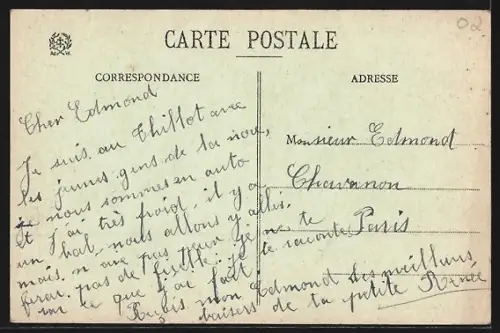 02
CARTE POSTALE
CORRESPONDANCE
ADRESSE
Cher Edmond
Je suis au Thillot avec
les jeunes gens de la noce,
nous sommes en auto
et j'ai très froid, il y a
un bal, nous allons y aller,
mais n'aie pas peur je ne
ferai pas de je te raconte
ce que j'ai fait
mon Edmond les meilleurs
baisers de ta petite Renée
Monsieur Edmond
Chavanon
Paris